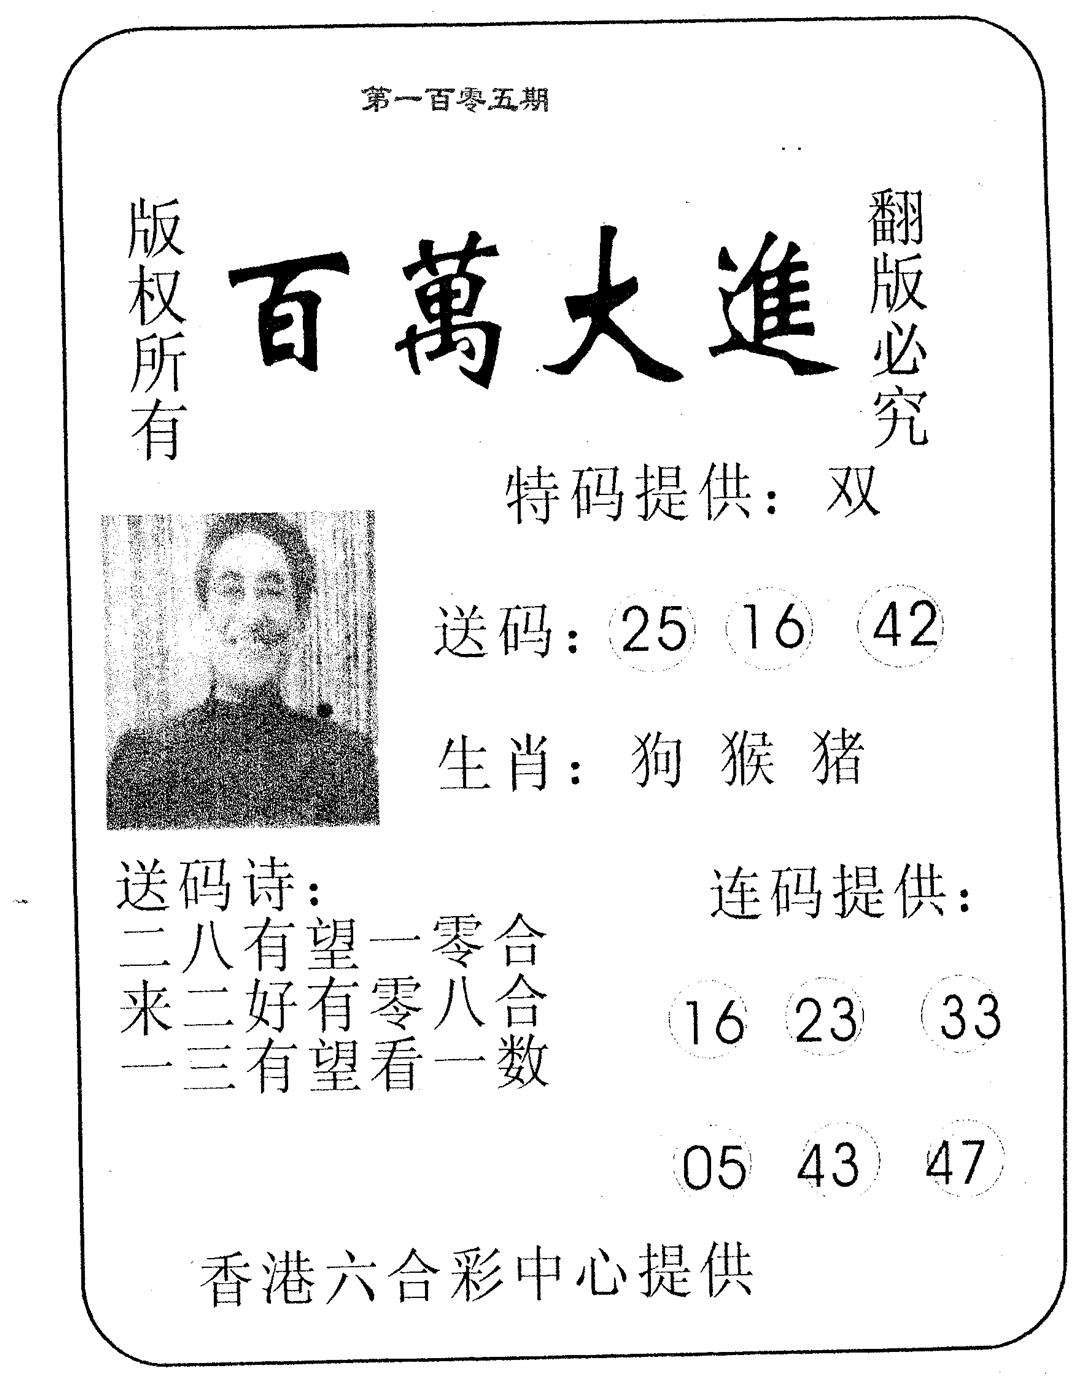 第一百零五期
版权所有
百萬大進
翻版必究
特码提供：双
送码：25 16 42
生肖：狗 猴 猪
送码诗：
二八有望一零合
来二好有零八合
一三有望看一数
连码提供：
16 23 33
05 43 47
香港六合彩中心提供